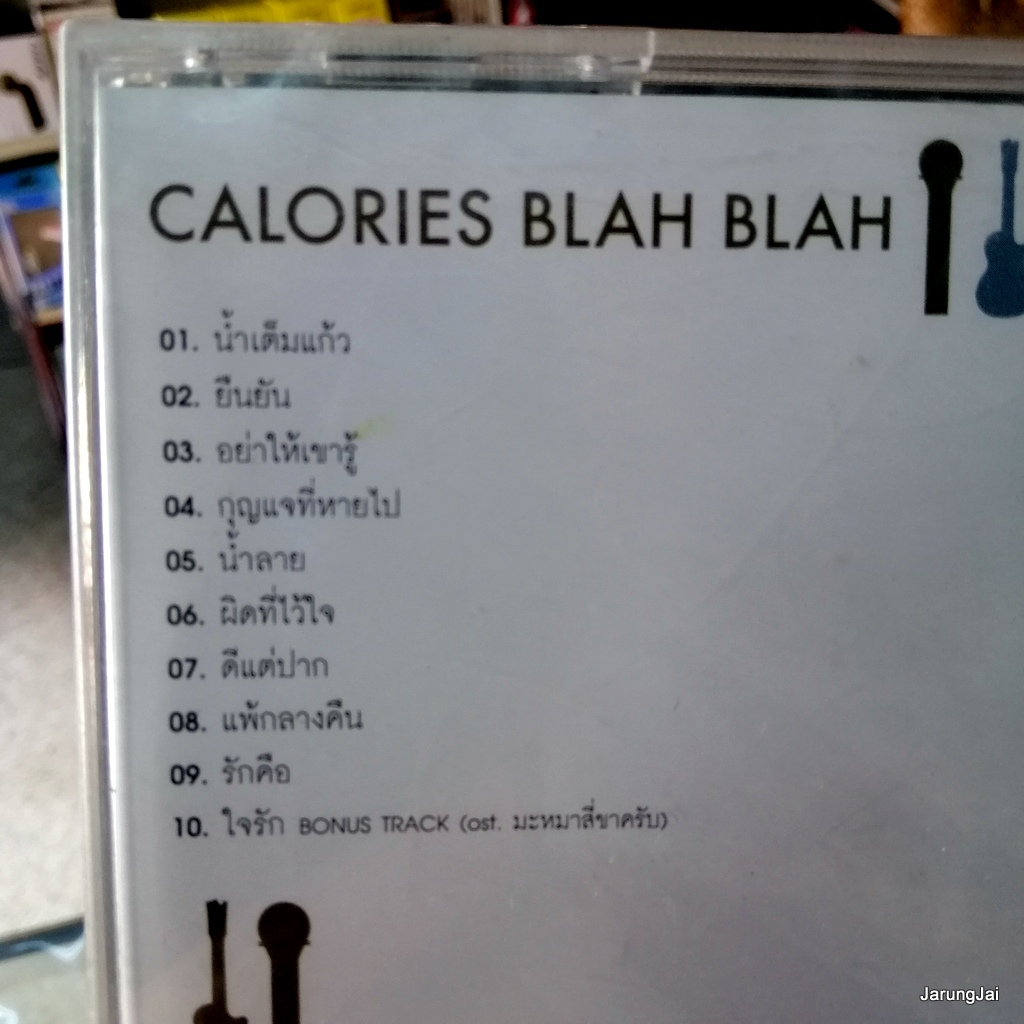 CALORIES BLAH BLAH
01. น้ำเต็มแก้ว
02. ยืนยัน
03. อย่าให้เขารู้
04. กุญแจที่หายไป
05. น้ำลาย
06. ผิดที่ไว้ใจ
07. ดีแต่ปาก
08. แพ้กลางคืน
09. รักคือ
10. ใจรัก BONUS TRACK (ost. มะหมาสี่ขาครับ)
JarungJai